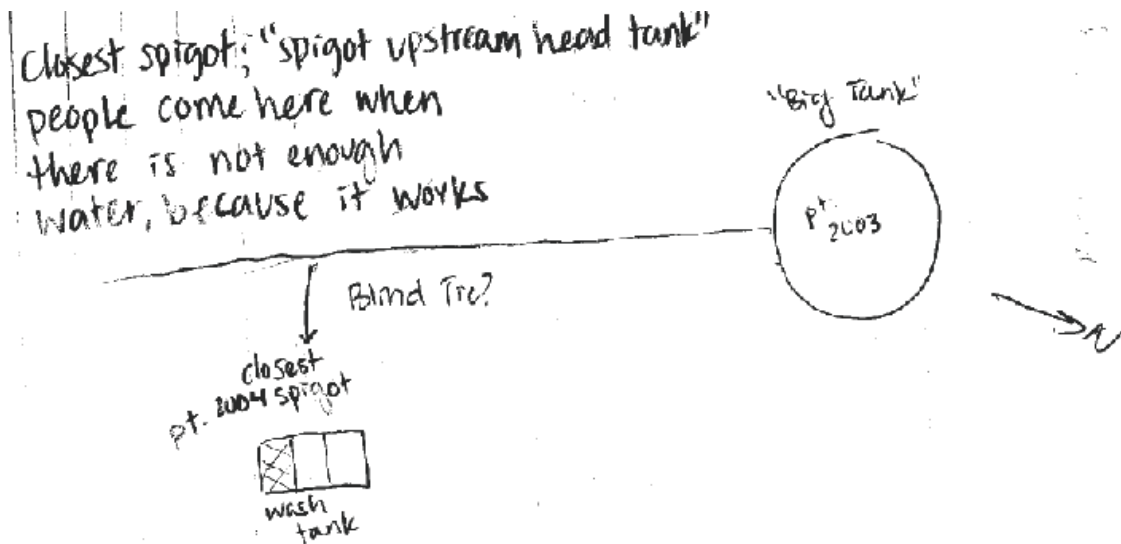 Closest spigot; "spigot upstream head tank"
people come here when
there is not enough
water, because it works
"Big Tank"
pt. 2003
Blind Tie?
N
closest
pt. 2004 spigot
wash
tank